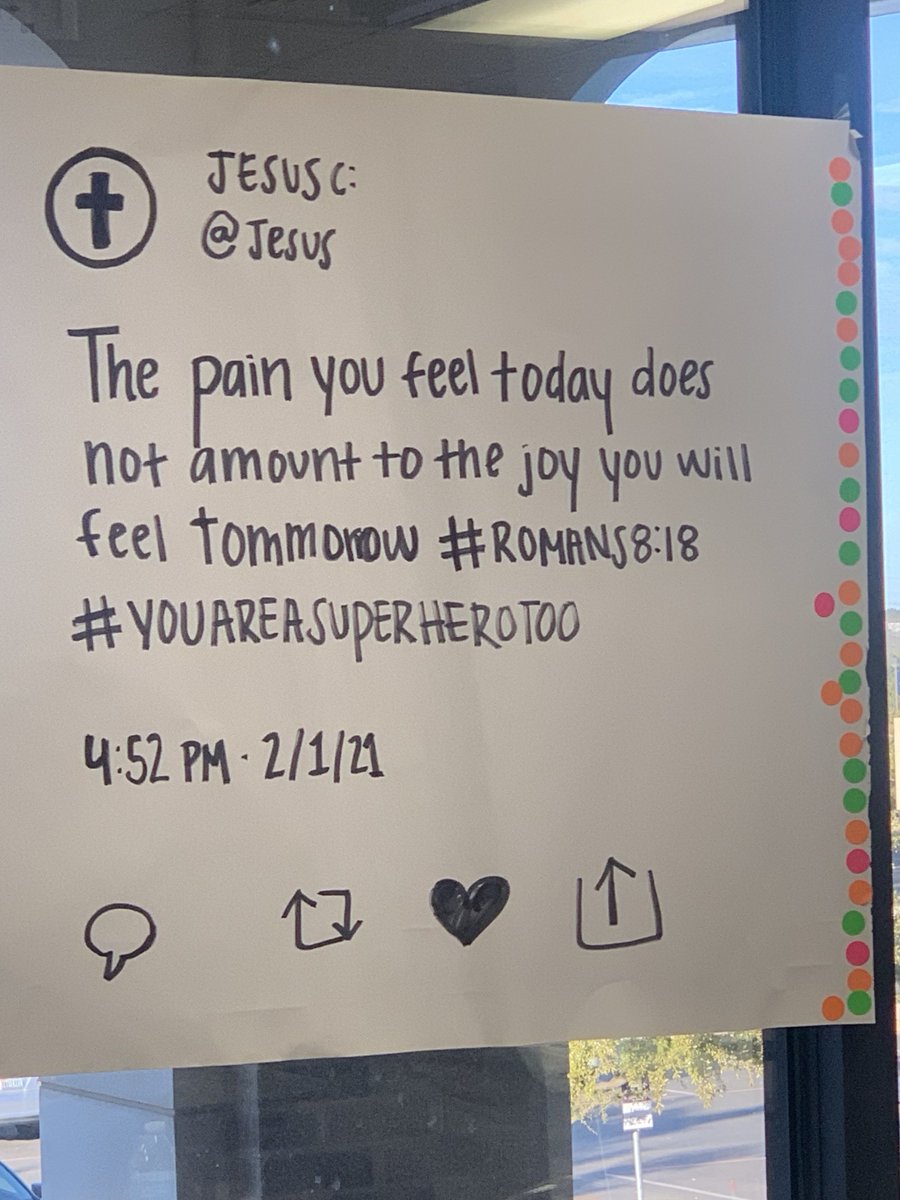 JESUS C:
@Jesus
The pain you feel today does
not amount to the joy you will
feel tommorow #ROMANS8:18
#YOUAREASUPERHEROTOO
4:52 PM · 2/1/21